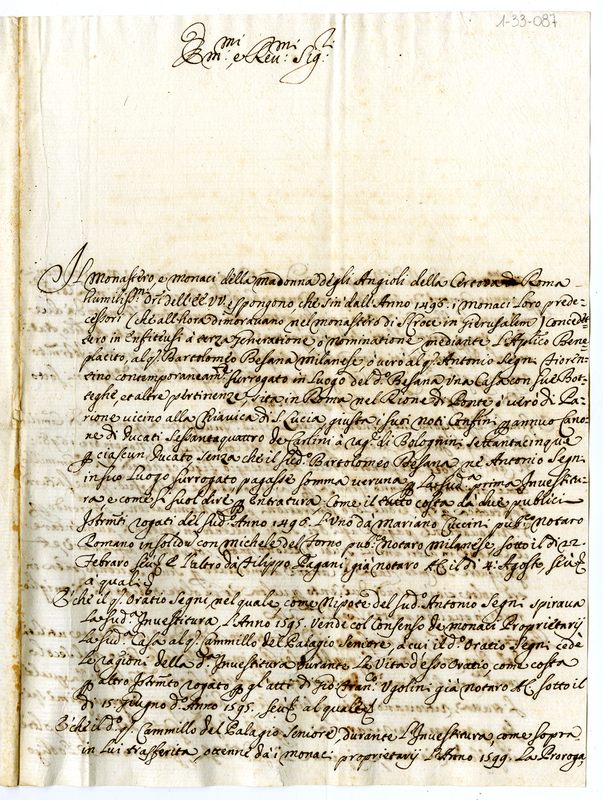 1-33-087
Em.mi e Rev.mi Sig.ri
Il Monastero, e monaci della Madonna degli Angioli della Certosa di Roma
humiliss.mi Ori dell'EE VV. espongono che sin dall'Anno 1495. i Monaci loro prede-
cessori (che all'hora dimoravano nel monastero di S. Croce in Gierusalem) Concedet-
tero in Enfiteusi à terza generatione, ò nominatione mediante l'Ap.lico Bene-
placito, al q. Bartolomeo Besana Milanese, ò vero al q. Antonio Segni fioren-
tino contemporaneam.te surrogato in luogo del d.o Besana Una Casa con sue Bot-
teghe, et altre pertinenze, sita in Roma nel Rione di Ponte, ò vero di Pa-
rione vicino alla Chiavica di S. Lucia, giusta i suoi noti Confini, p annuo Cano-
ne di Ducati Sessantaquattro de Carlini à rag.e di Bolognini settantacinque
p ciascun Ducato, senza che il sud.o Bartolomeo Besana, nè Antonio Segni
in suo luogo surrogato pagasse somma veruna p la sud.a prima Investitu-
ra, e come si suol dire p entratura. Come il tutto costa da due publici
Istrom.ti rogati del sud.o Anno 1496. L'Uno da Mariano Cuccini pub.co Notaro
Romano insolidu con Michele del Forno pub.co Notaro milanese, sotto il dì 22
Febraro, seu & l'altro da Filippo Pagani, già notaro AC il dì 4. Agosto, seu &
a quali &
E che il q. Oratio Segni nel quale, come Nipote del sud.o Antonio Segni spirava
la sud.a Investitura, l'Anno 1595. Vendè col Consenso de monaci Proprietarij
la sud.a Casa al q. Cammillo del Palagio Seniore, a cui il d.o Oratio Segni cedè
le ragioni della d.a Investitura durante la Vita d'esso Oratio, come costa
p altro Istrom.to rogato p gl'atti di Gio: Fran.co Ugolini già notaro AC sotto il
dì 15. Giugno d.o Anno 1595. seu & al quale &
E che il d.o q. Cammillo del Palagio Seniore, durante l'Investitura, come sopra
in lui trasferita, ottenne da i monaci proprietarij l'Anno 1599. La Proroga,